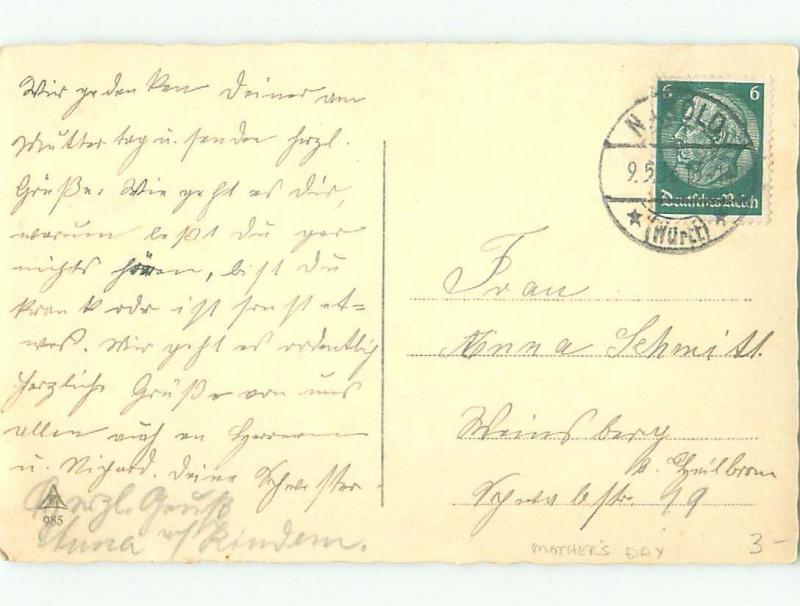 Wir gedenken Deiner am
Muttertag u. senden herzl.
Grüße. Wie geht es Dir,
warum läßt Du gar
nichts hören, bist Du
krank oder ist sonst et=
was. Mir geht es ordentlich
herzliche Grüße von uns
allen auch an Hermann
u. Richard. Deine Schwester
Herzl. Gruß
Anna Kindern.
985
6 6
Deutsches Reich
NAGOLD
9.5.
(Württ)
Frau
Anna Schmitt.
Weinsberg
b. Heilbronn
Schwabstr. 49
MOTHER'S DAY
3-